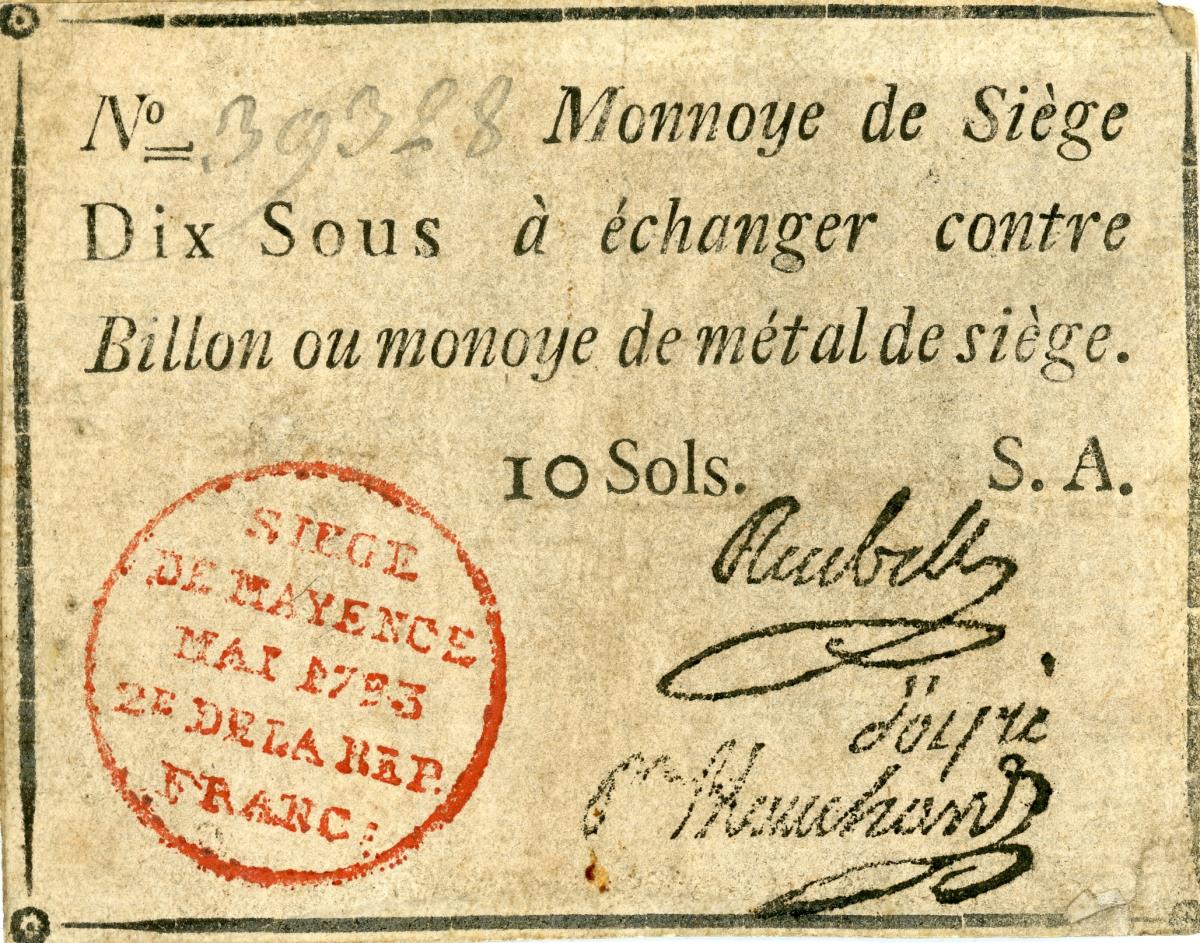 No 39328 Monnoye de Siège
Dix Sous à échanger contre
Billon ou monoye de métal de siège.
10 Sols. S. A.
SIEGE
DE MAYENCE
MAI 1793
2E DE LA RÉP.
FRANC:
Reubell